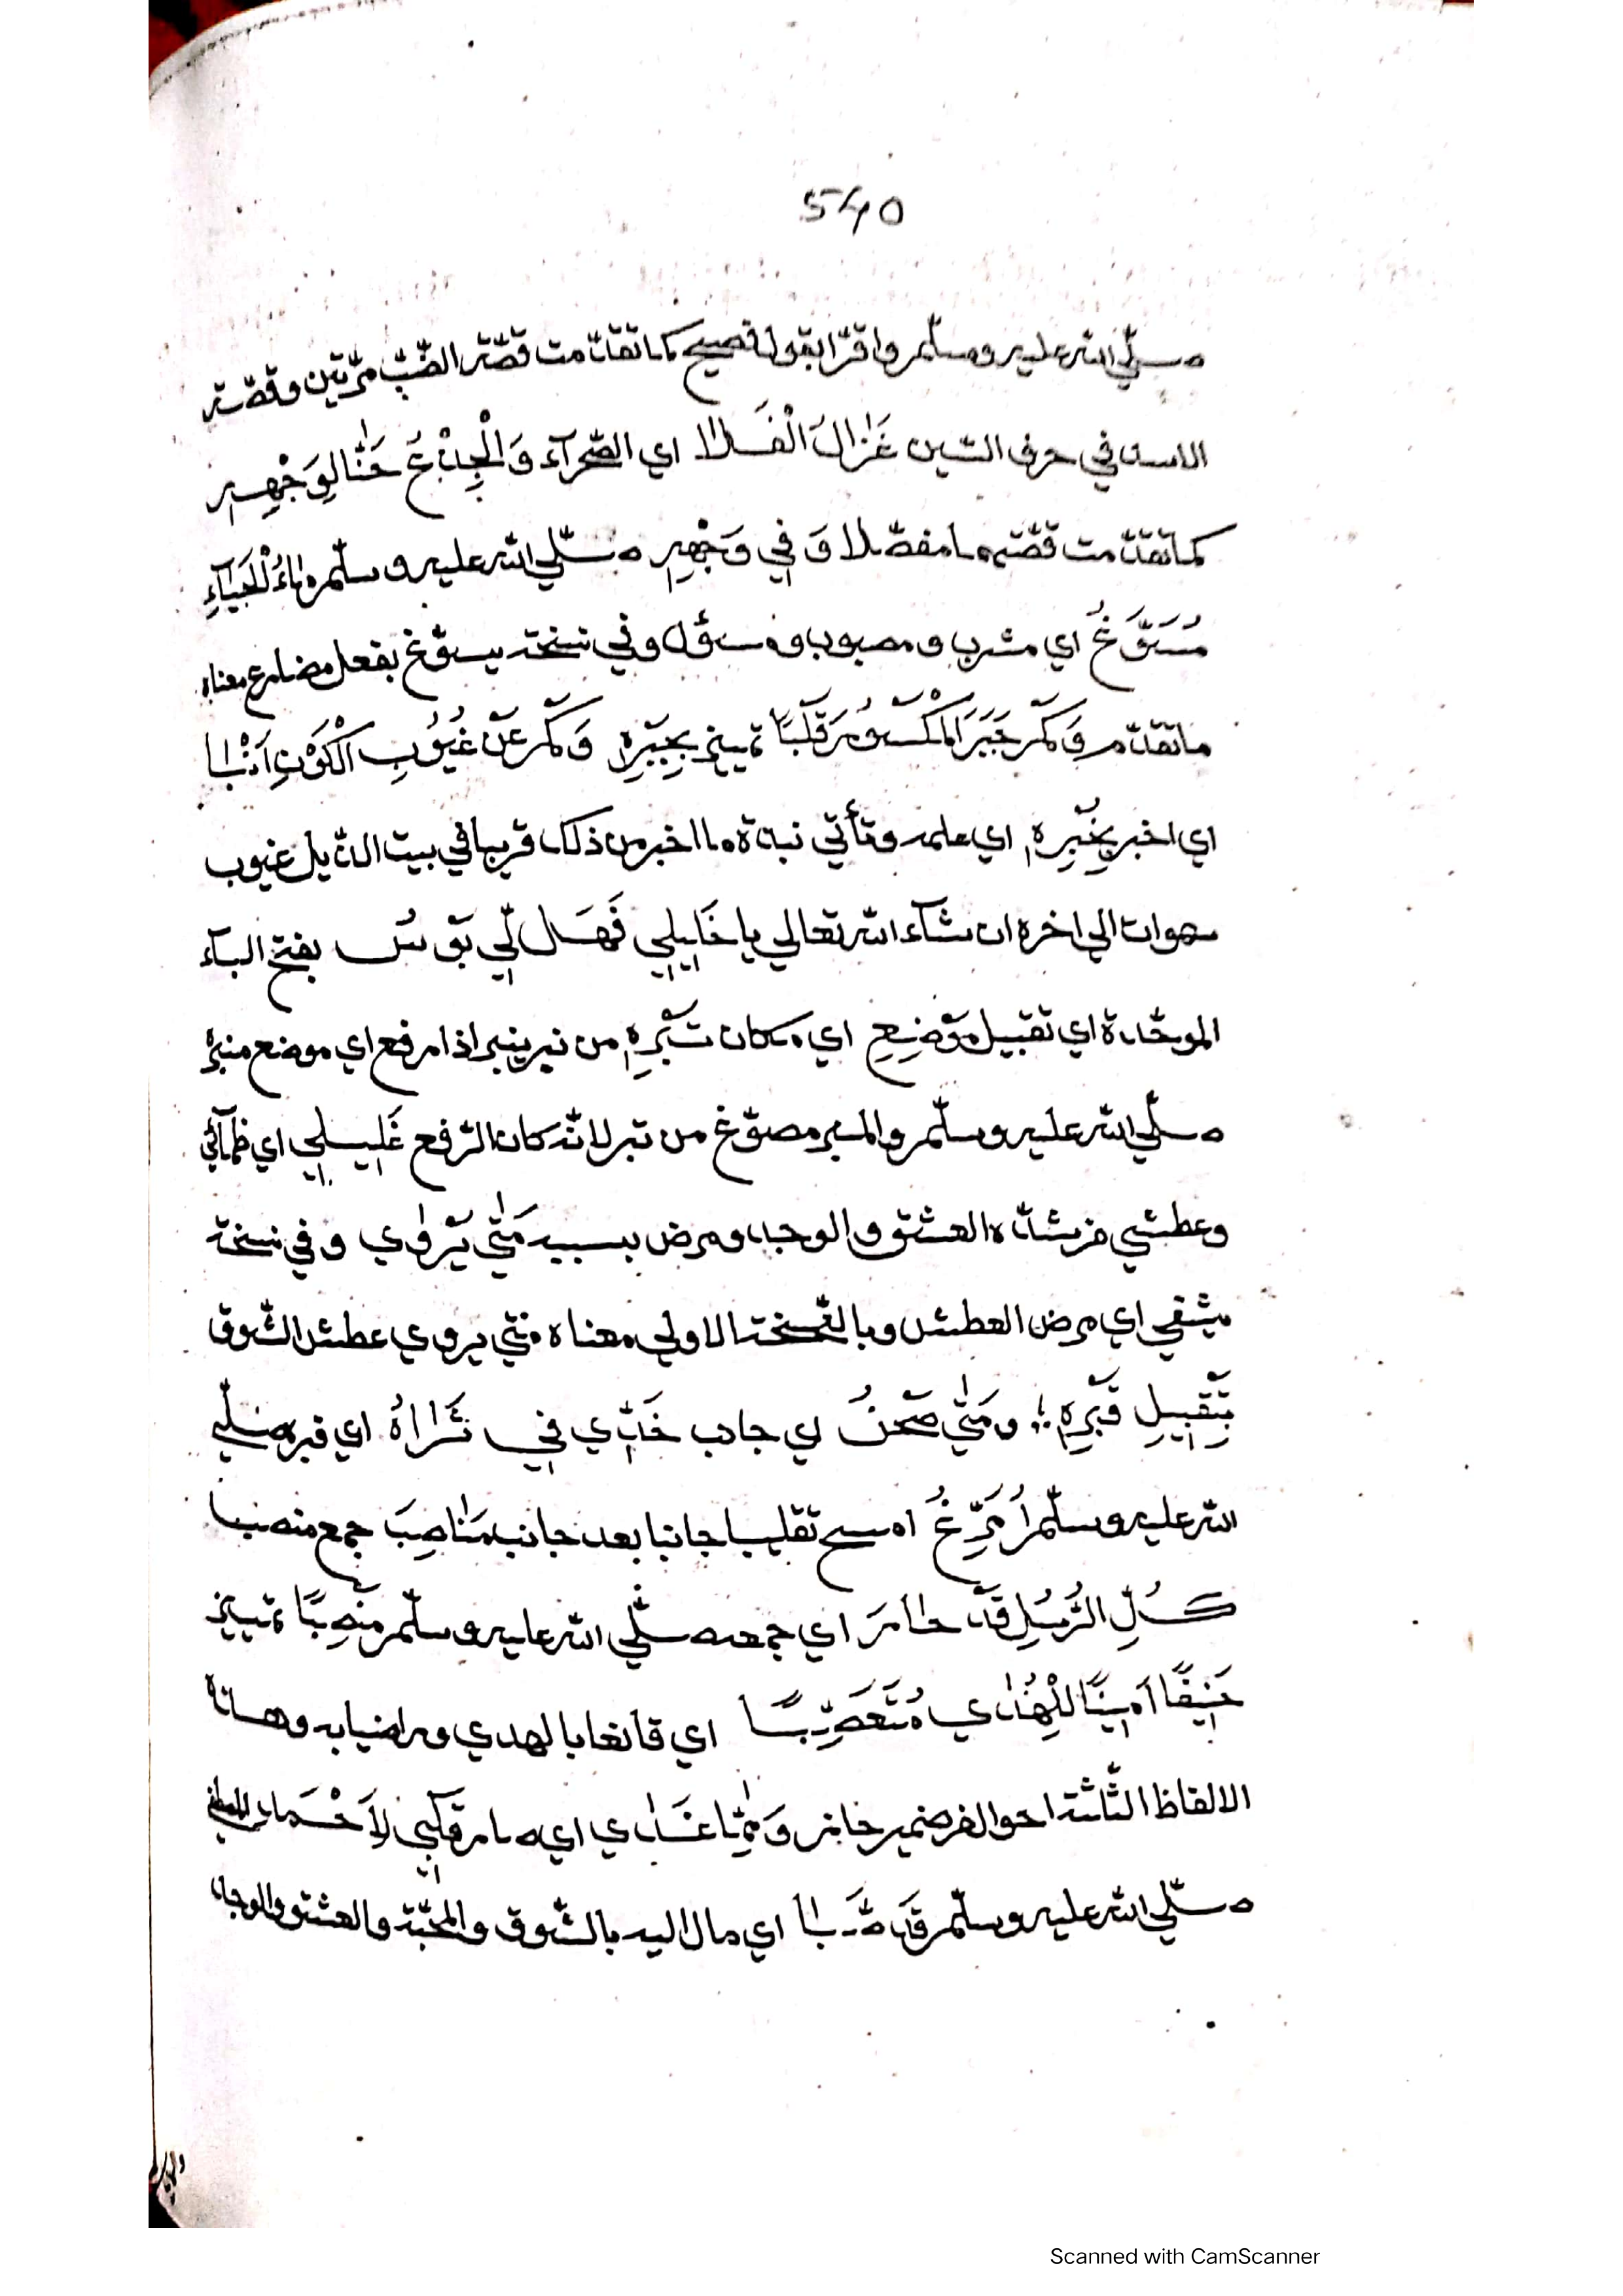 540
صلّي الله عليه وسلّم واقرّا بقول فصيح كما تقدّمت قصّة الضّبّ مرّتين وقصّة
الاسد في حرف السّين غَزَالُ الْفَلَا اي الصّحرآء وَالْجِذْعُ حَنَّا لِوَجْهِهِ
كما تقدّمت قصّتهما مفصّلا وَفِي وَجْهِهِ صلّي الله عليه وسلّم مَاءُ الْحَيَاءِ
مُسَوَّغُ اي مشرب ومصبوب وفي نسخة يسوّغ بفعل مضارع معناه
ما تقدّم وَكَمْ جَبَرَ الْمَكْسُورَ قَلْبًا تمييز بِجَبْرِهِ وَكَمْ عَنْ غُيُوبِ الْكَوْنِ اَنْبَا
اي اخبر بِخُبْرِهِ اي علمه وتأتي نبذة ما اخبر من ذلك قريبا في بيت الذّيل غيوب
سهوات الي اخره ان شآء الله تعالي يا خَلِيلِي فَهَل لِّي بَوْسُ بفتح البآء
الموحّدة اي تقبيل مَوْضِعِ اي مكان نَبْرِهِ من نبر ينبر اذا رفع اي موضع منبره
صلّي الله عليه وسلّم والمنبر مصوّغ من نبر لانّه كان الرّفع غَلِيلِي اي ظمآئي
وعطشي من شدّة العشق والوجد ومرض بسببه مَتٰي يَرْوٰي وفي نسخة
يشفي اي مرض العطش وبالنّسخة الاولي معناه متي يروي عطش الشّوق
بِتَقْبِيلِ قَبْرِهِ ؛ ومَتٰي صَحْنُ اي جانب خَدِّي فِي ثَرَاهُ اي قبره صلّي
الله عليه وسلّم اُمَرِّغُ امسح تقليبا جانبا بعد جانب مَنَاصِبَ جمع منصب
كُلِّ الرُّسُلِ قَدْ حَازَ اي جمع صلّي الله عليه وسلّم مَنْصِبًا تمييز
حَنِيفًا اَمِينًا لِلْهُدٰي مُتَعَصِّبًا اي قانعا بالهدي وراضيا به وهذه
الالفاظ الثّلثة احوال من ضمير حاز وَمِمَّا غَدَا اي صار قَلْبِي لِاَحْمَدَ
صلّي الله عليه وسلّم قَدْ صَبَا اي مال اليه بالشّوق والمحبّة والعشق والوجد
Scanned with CamScanner